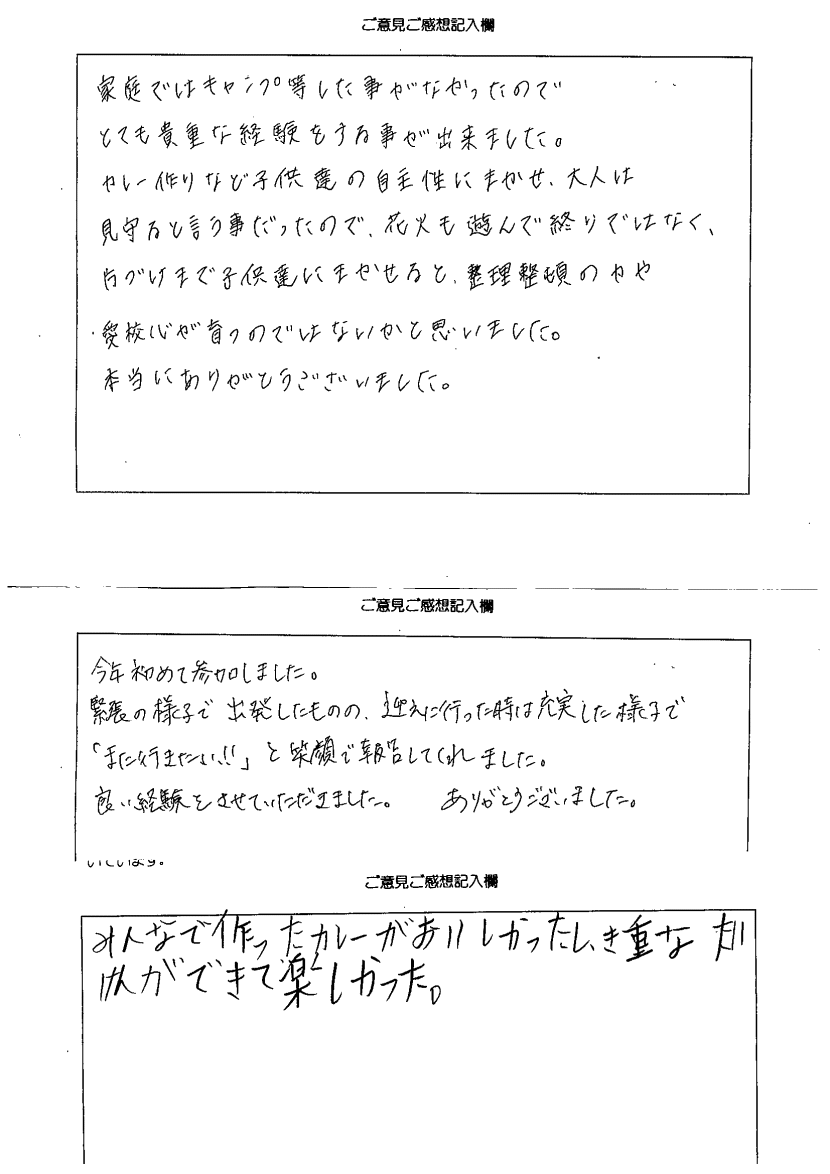 ご意見ご感想記入欄
家庭ではキャンプ等した事がなかったので
とても貴重な経験をする事が出来ました。
カレー作りなど子供達の自主性にまかせ、大人は
見守ると言う事だったので、花火も遊んで終りではなく、
片づけまで子供達にまかせると、整理整頓の力や
愛校心が育つのではないかと思いました。
本当にありがとうございました。
ご意見ご感想記入欄
今年初めて参加しました。
緊張の様子で出発したものの、迎えに行った時は充実した様子で
「また行きたい!!」と笑顔で報告してくれました。
良い経験をさせていただきました。 ありがとうございました。
ご意見ご感想記入欄
みんなで作ったカレーがおいしかったし、き重な
けんができて楽しかった。